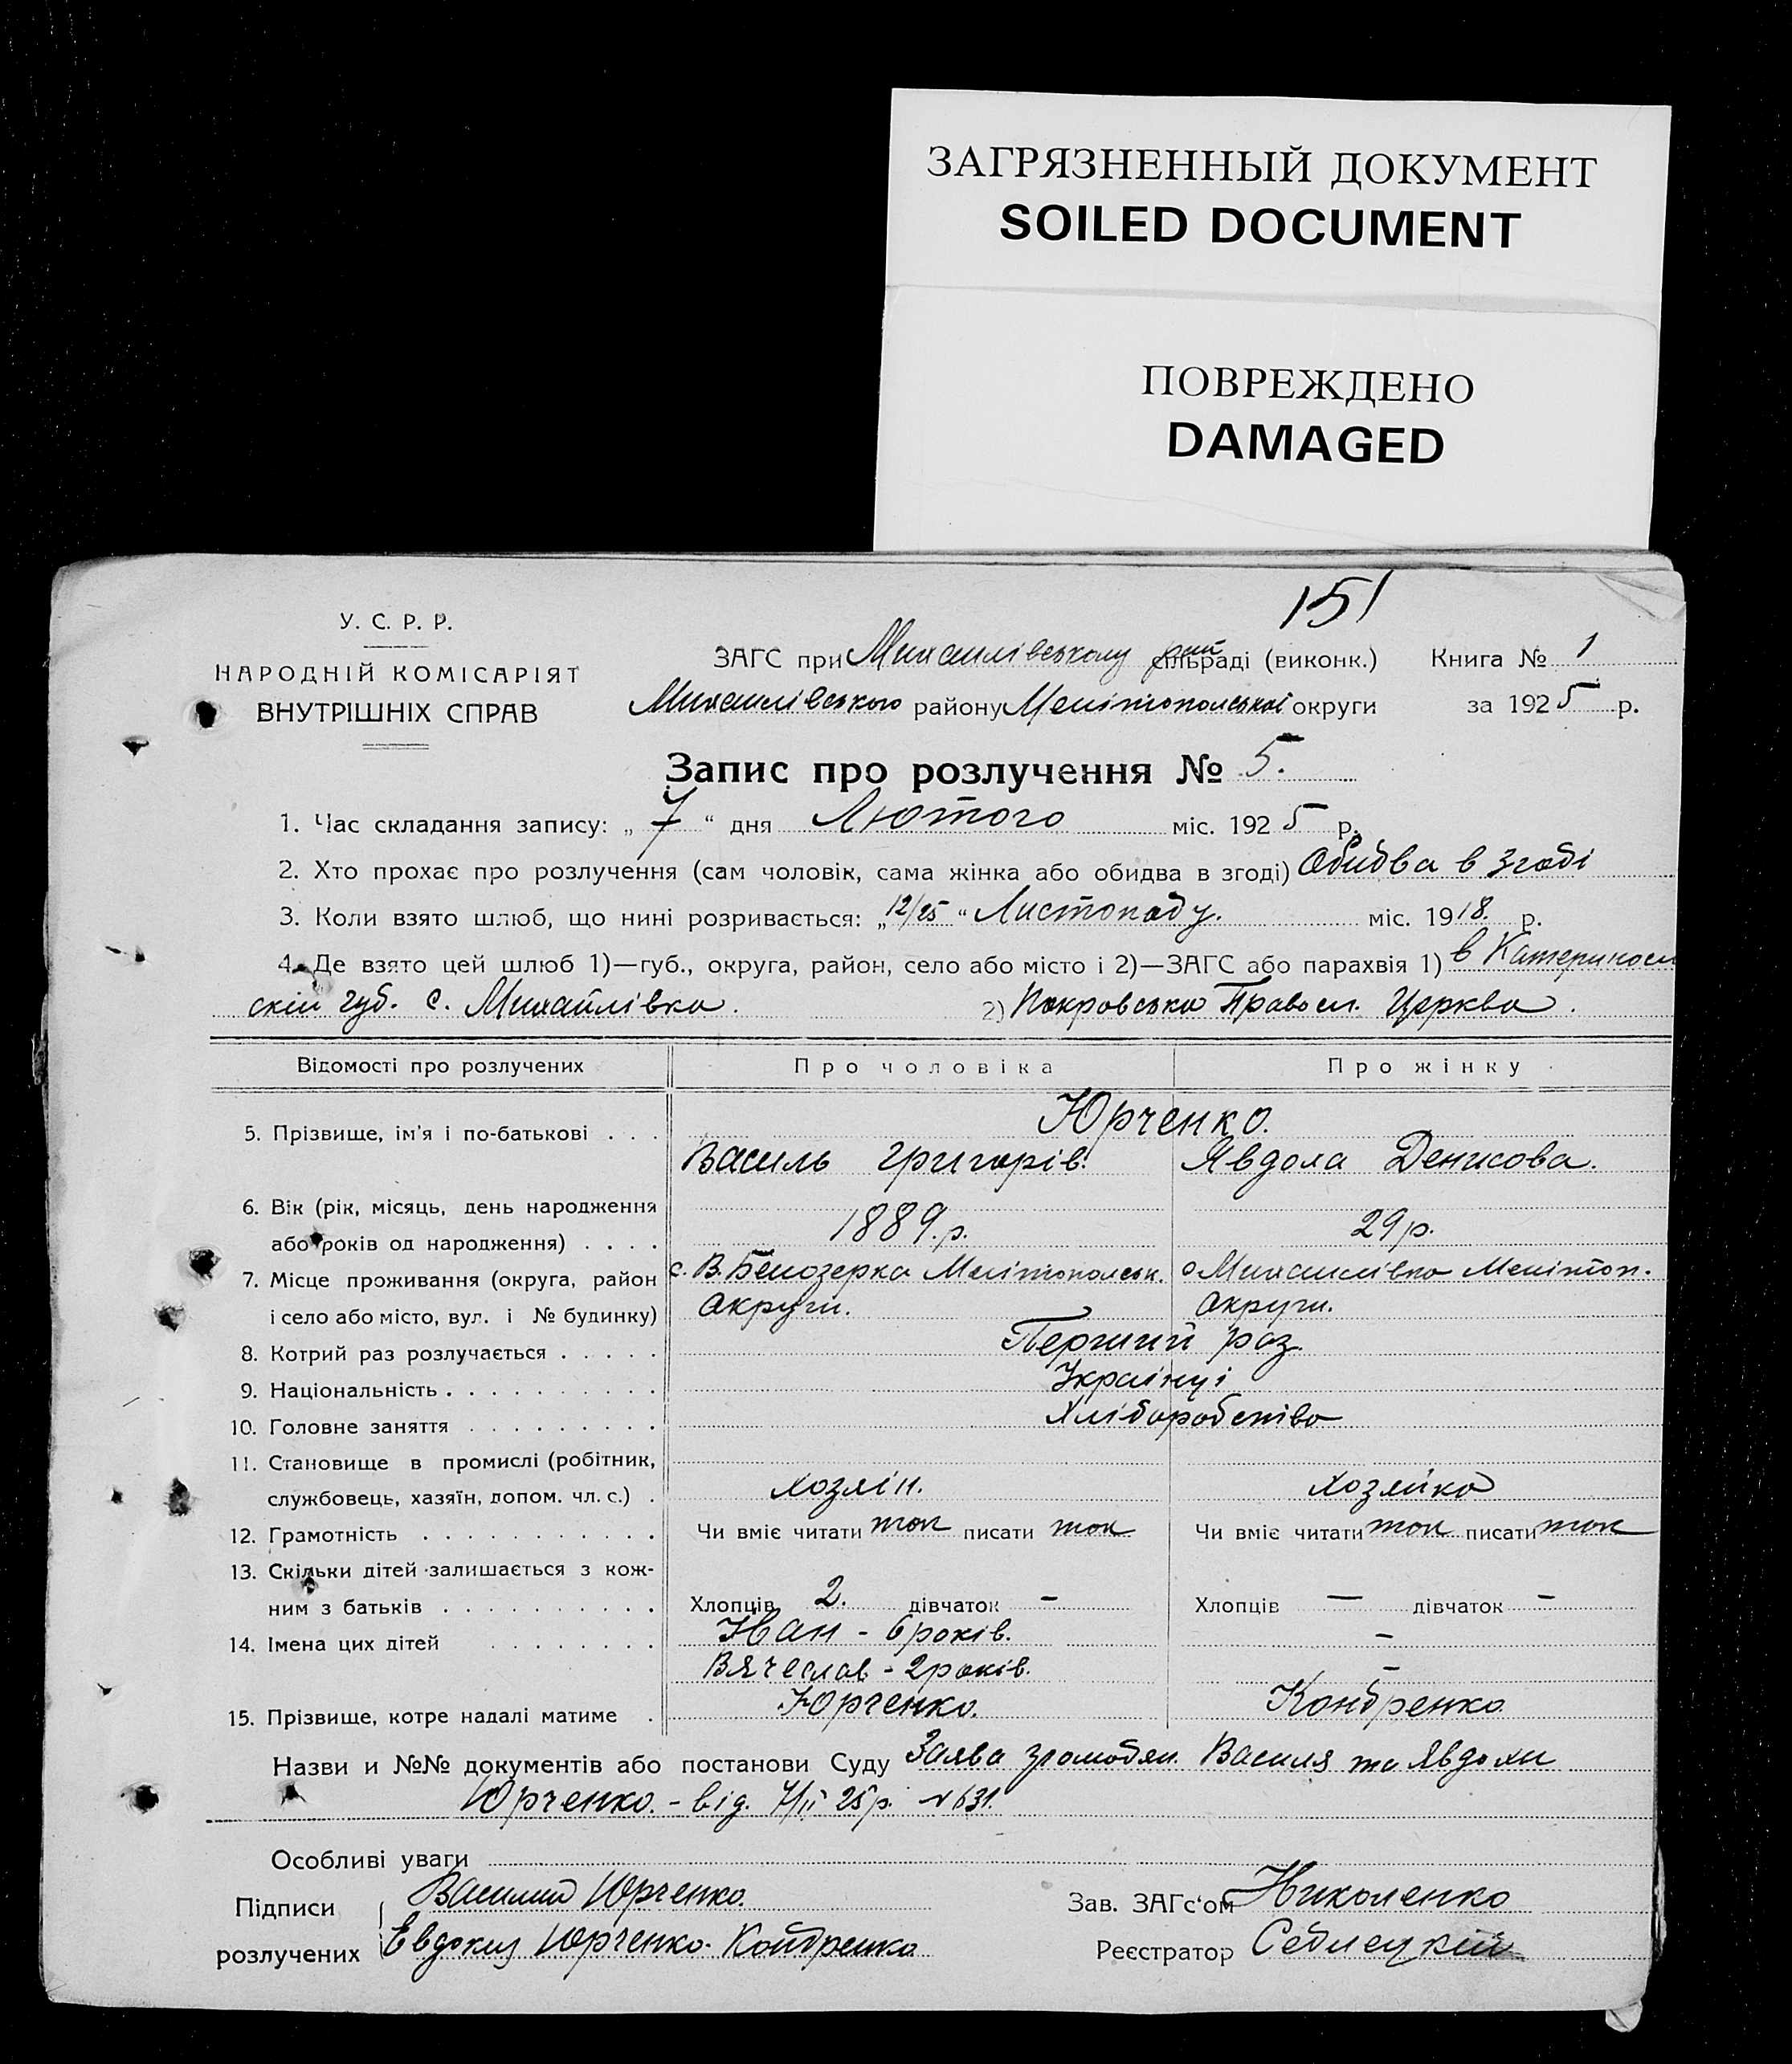 ЗАГРЯЗНЕННЫЙ ДОКУМЕНТ
SOILED DOCUMENT
ПОВРЕЖДЕНО
DAMAGED
151
У. С. Р. Р.
НАРОДНІЙ КОМІСАРІЯТ
ВНУТРІШНІХ СПРАВ
ЗАГС при Михайлівському рай сільраді (виконк.) Книга № 1
Михайлівського району Мелітопольської округи за 1925 р.
Запис про розлучення № 5.
1. Час складання запису: „ 7 “ дня Лютого міс. 1925 р.
2. Хто прохає про розлучення (сам чоловік, сама жінка або обидва в згоді) Обидва в згоді
3. Коли взято шлюб, що нині розривається: „12/25 “ Листопаду. міс. 1918. р.
4. Де взято цей шлюб 1)—губ., округа, район, село або місто і 2)—ЗАГС або парахвія 1) в Катеринослав
скій губ. с. Михайлівка. 2) Покровська Правосл. Церква.
Відомості про розлучених Про чоловіка Про жінку
5. Прізвище, ім'я і по-батькові . . . Юрченко.
Василь Григорів. Явдоха Денисова.
6. Вік (рік, місяць, день народження
або років од народження) . . . . 1889.р. 29 р.
7. Місце проживання (округа, район с. В. Белозерка Мелітопольськ. с Михайлівка Мелітоп.
і село або місто, вул. і № будинку) округи. округи.
8. Котрий раз розлучається . . . . . Перший раз.
9. Національність . . . . . . . . . . Українці
10. Головне заняття . . . . . . . . . Хліборобство
11. Становище в промислі (робітник,
службовець, хазяїн, допом. чл. с.) . хозяін. хозяйка
12. Грамотність . . . . . . . . . . . Чи вміє читати так писати так Чи вміє читати так писати так
13. Скільки дітей залишається з кож-
ним з батьків . . . . . . . . . . Хлопців 2. дівчаток — Хлопців — дівчаток —
14. Імена цих дітей . . . . . . . . Іван - 6 років. —
Вячеслав - 2 років. —
15. Прізвище, котре надалі матиме . Юрченко. Кондренко
Назви и №№ документів або постанови Суду Заява громодян. Василя та Явдохи
Юрченко. - від. 7/II 25 р. № 631.
Особливі уваги
Підписи Василий Юрченко. Зав. ЗАГс'ом Николенко
розлучених Евдокия Юрченко-Кондренко Реєстратор Седлецкій